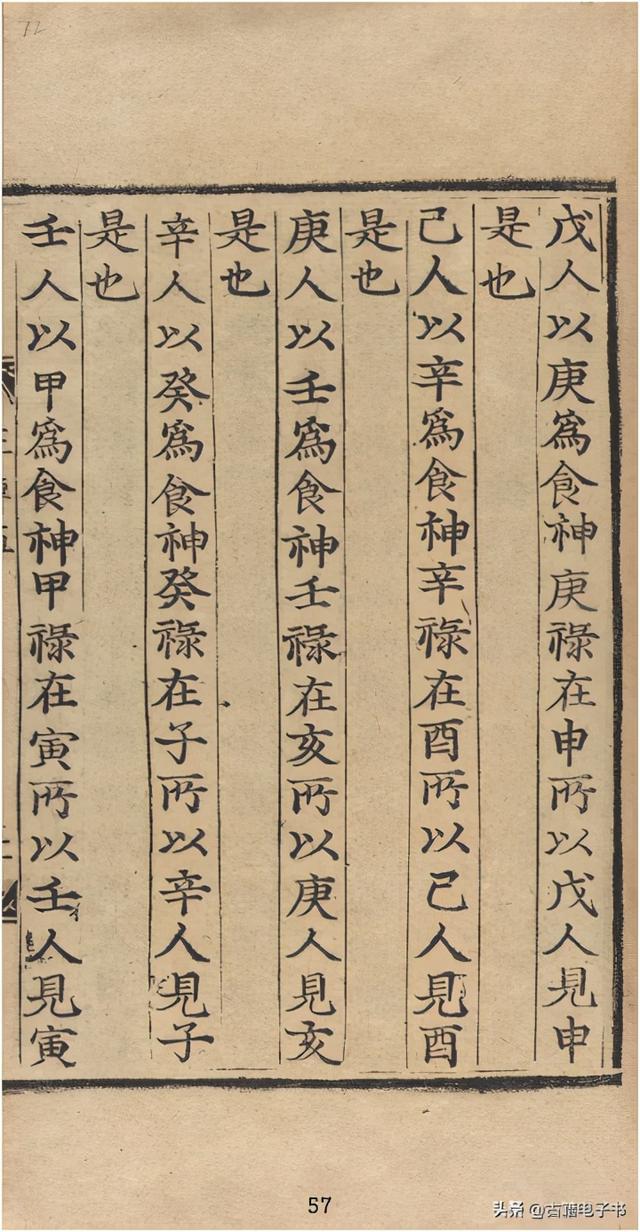 戊人以庚爲食神庚祿在申所以戊人見申
是也
己人以辛爲食神辛祿在酉所以己人見酉
是也
庚人以壬爲食神壬祿在亥所以庚人見亥
是也
辛人以癸爲食神癸祿在子所以辛人見子
是也
壬人以甲爲食神甲祿在寅所以壬人見寅
57
头条 @古籍电子书